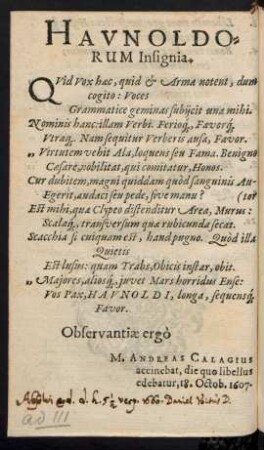 HAVNOLDO-
RUM Insignia.
QVid Vox hæc, quid & Arma notent, dum
cogito: Voces
Grammatice geminas subijcit una mihi.
Nominis hanc: illam Verbi. Ferioq́, Favorq́,
Vtraq́. Nam sequitur Verberis ausa, Favor.
„ Virtutem vehit Ala, loquens seu Fama. Benigno
Cæsare, nobilitat, qui comitatur, Honos.
Cur dubitem, magni quiddam quòd sanguinis Au-
Egerit, audaci seu pede, sive manu? (tor
Est mihi, qua Clypeo distenditur Area, Murus:
Scalaq́, transversum qua rubicunda secat.
Scacchia si cuiquam est, haud pugno. Quòd illa
Quietis
Est lusus: quam Trabs, Obicis instar, obit.
„ Majores, aliosq́, juvet Mars horridus Ense:
Vos Pax, HAVNOLDI, longa, sequensq́
Favor.
Observantiæ ergò
M. ANDREAS CALAGIUS
accinebat, die quo libellus
edebatur, 18. Octob. 1607.
d. h. 5½ 1660. Daniel D.
ad III